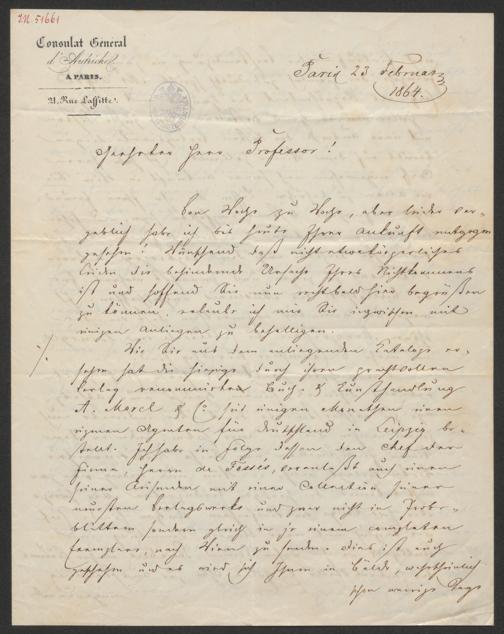 IN. 51661
Consulat Général
d'Autriche
A PARIS.
21, Rue Laffitte.
Paris 23 Februar
1864.
Geehrter Herr Professor!
Von Woche zu Woche, aber leider ver-
geblich habe ich bis heute Ihrer Ankunft entgegen
gesehen! Wünschend daß nicht etwa körperliches
Leiden die behindernde Ursache Ihres Nichtkommens
ist und hoffend Sie nun recht bald hier begrüßen
zu können, erlaube ich mir Sie inzwischen mit
einigen Anliegen zu behelligen.
Wie Sie aus dem anliegenden Kataloge er-
sehen hat die hiesige durch ihren prachtvollen
Verlag renommirte Buch- & Kunsthandlung
A. Morel & Co seit einigen Monathen einen
eigenen Agenten für Deutschland in Leipzig be-
stellt. Ich habe in Folge dessen den Chef der
Firma, Herrn de veranlaßt auch einen
seiner Reisenden mit einer Collection seiner
neuesten Verlagswerke und zwar nicht in Probe-
blättern sondern gleich in je einem completen
Exemplare, nach Wien zu senden. Dies ist auch
geschehen und es wird sich Ihnen in Bälde, wahrscheinlich
schon wenige Tage